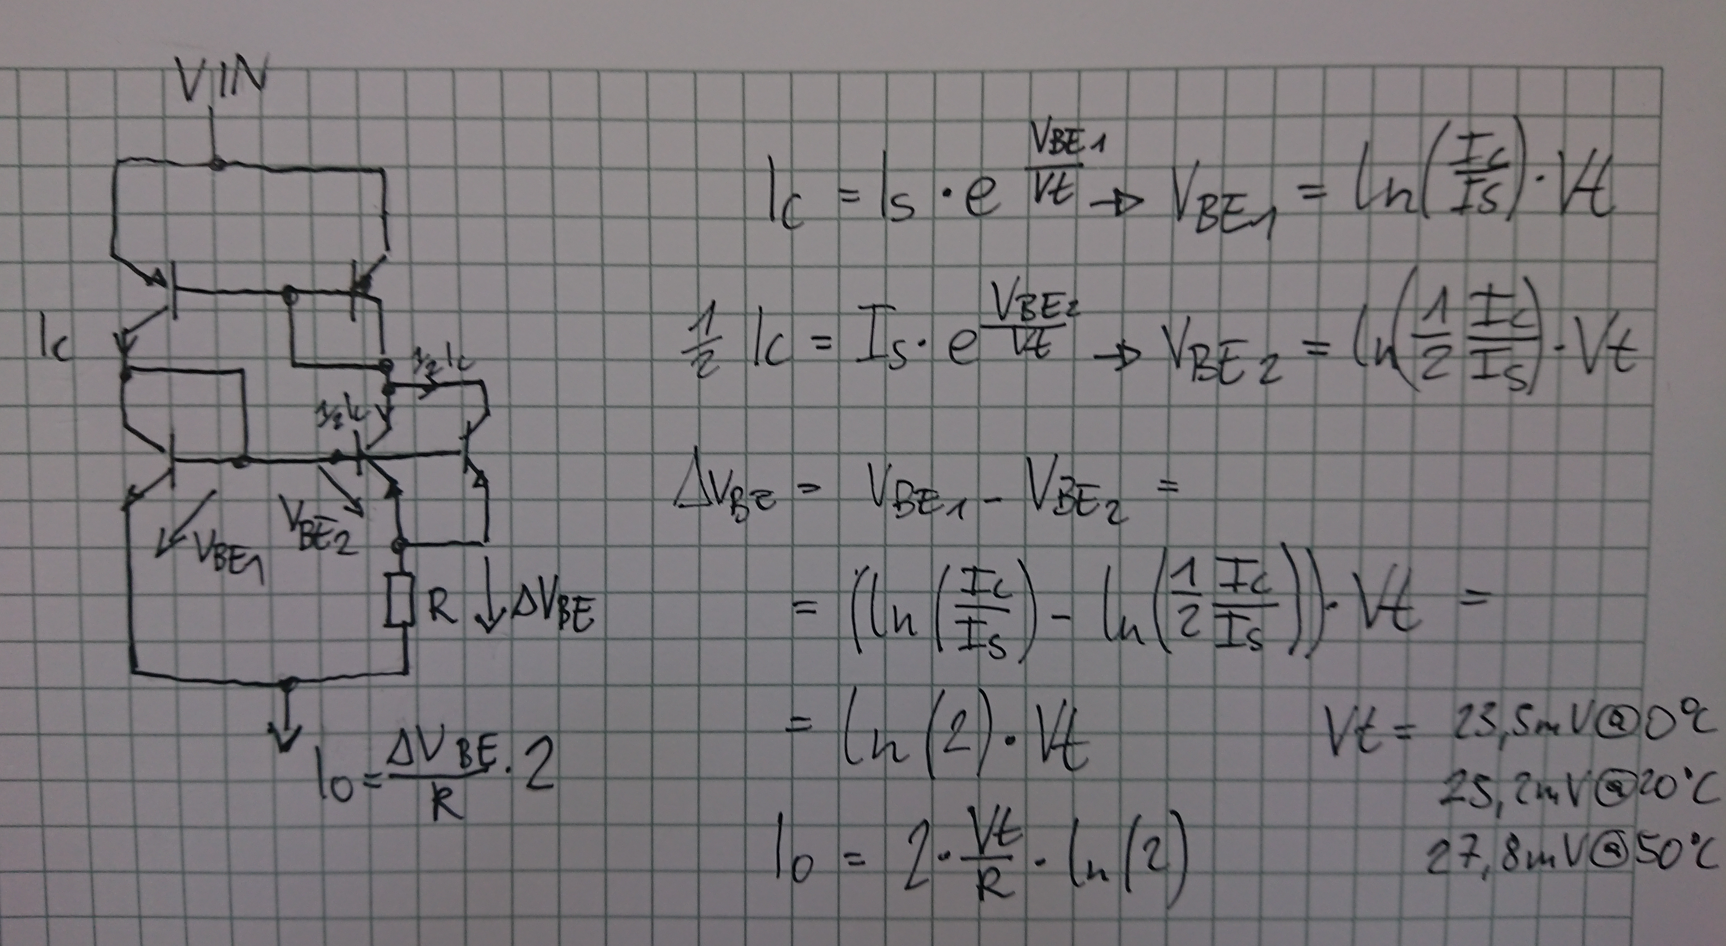 VIN
Ic
½Ic
½Ic
VBE1
VBE2
R
ΔVBE
Io = ΔVBE/R · 2
Ic = Is · e^(VBE1/Vt) → VBE1 = ln(Ic/Is) · Vt
1/2 Ic = Is · e^(VBE2/Vt) → VBE2 = ln(1/2 Ic/Is) · Vt
ΔVBE = VBE1 - VBE2 =
= (ln(Ic/Is) - ln(1/2 Ic/Is)) · Vt =
= ln(2) · Vt
Vt = 23,5mV@0°C
25,2mV@20°C
27,8mV@50°C
Io = 2 · Vt/R · ln(2)